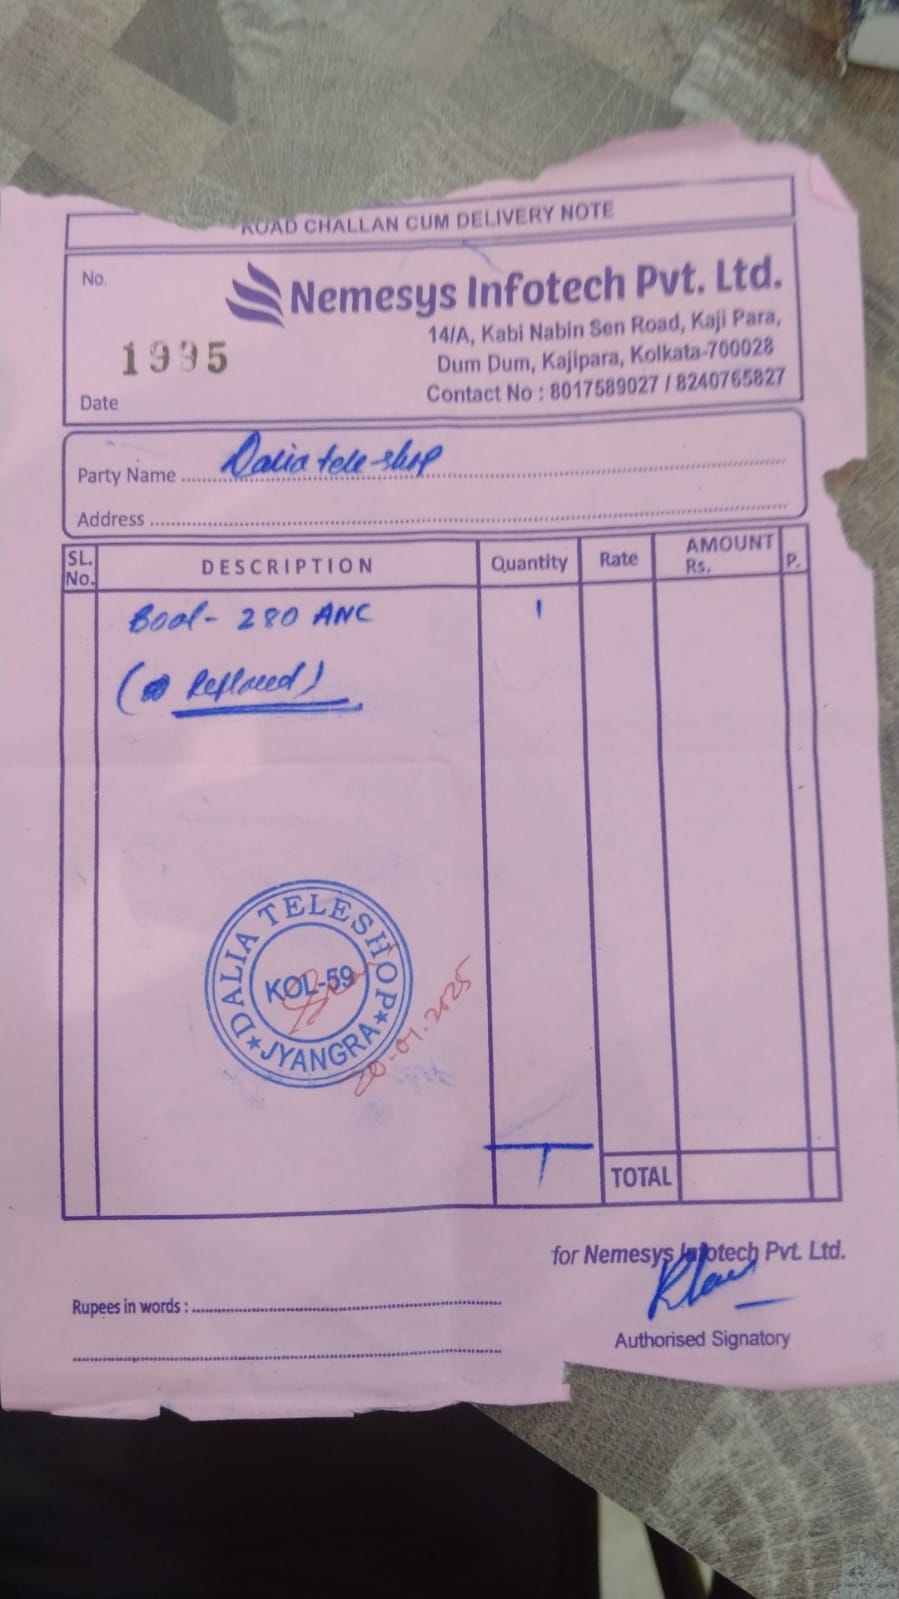 ROAD CHALLAN CUM DELIVERY NOTE
No.
Nemesys Infotech Pvt. Ltd.
14/A, Kabi Nabin Sen Road, Kaji Para,
1995
Dum Dum, Kajipara, Kolkata-700028
Date
Contact No : 8017589027 / 8240765827
Party Name Dalia tele-shop
Address
SL. No. DESCRIPTION Quantity Rate AMOUNT Rs. P.
Boal- 280 ANC 1
(Replaced)
DALIA TELESHOP
KOL-59
JYANGRA
20-01.2025
1
TOTAL
for Nemesys Infotech Pvt. Ltd.
Rupees in words :
Authorised Signatory